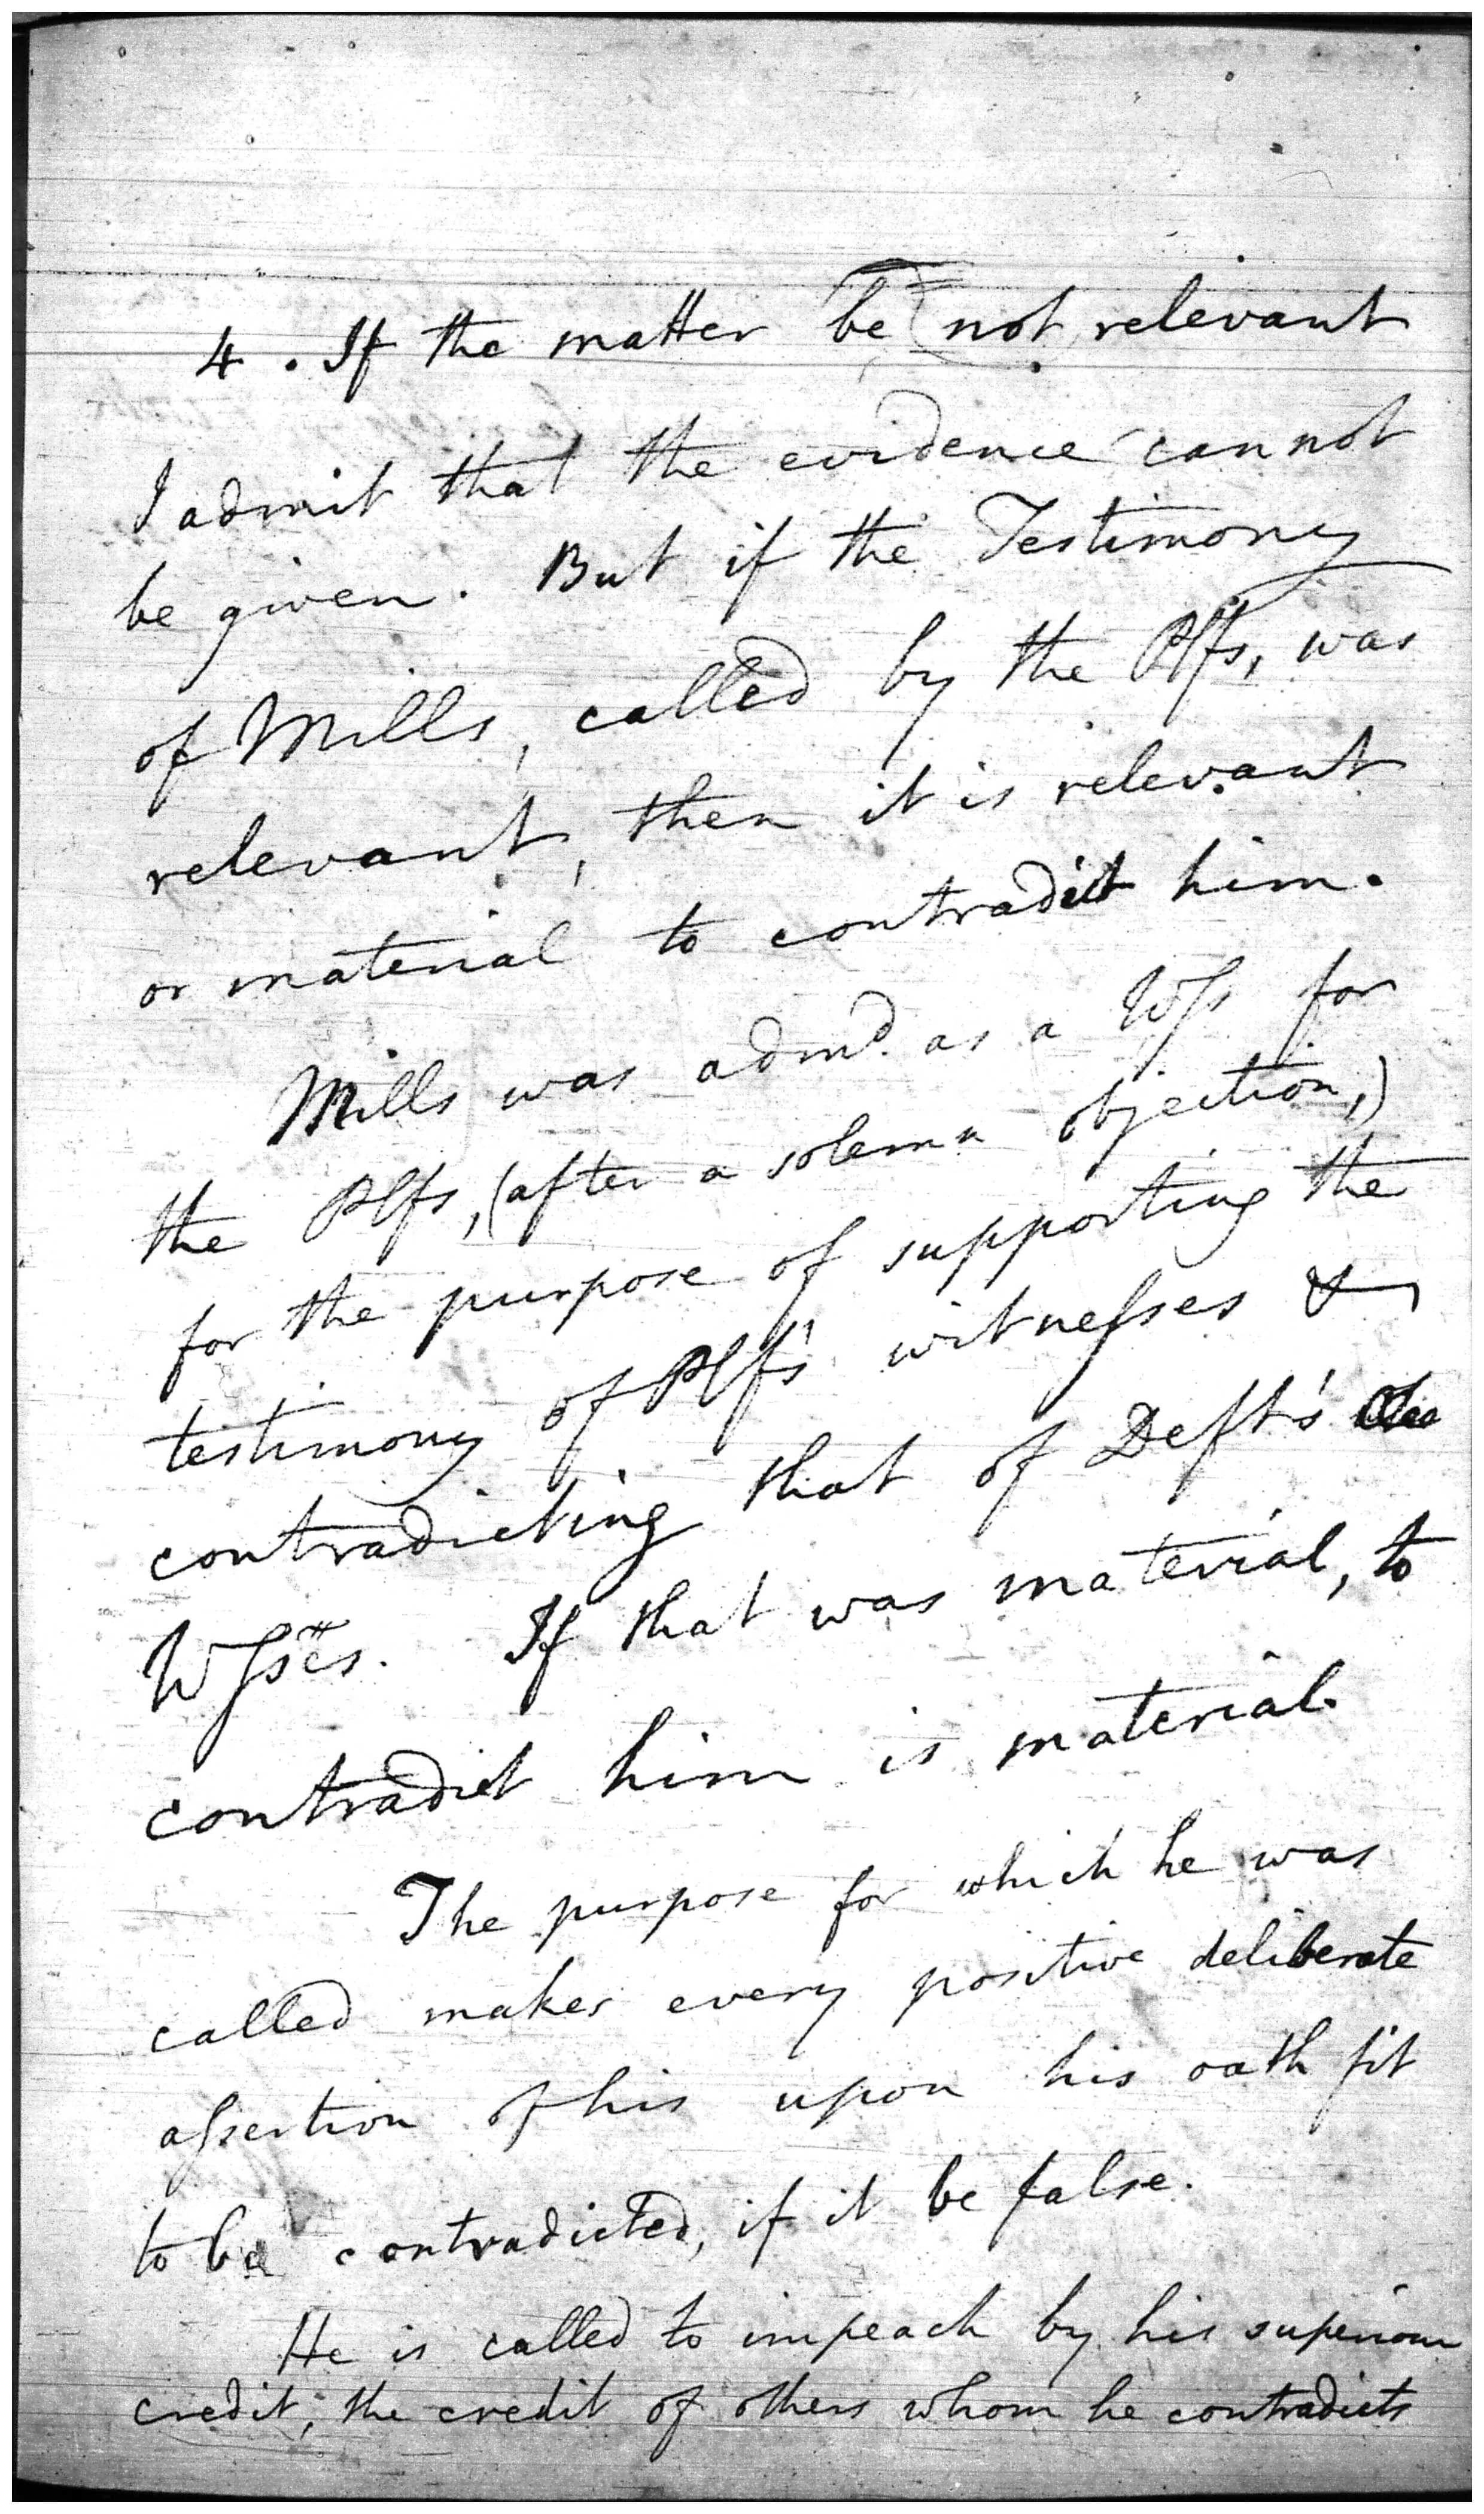 4. If the matter be not relevant
I admit that the evidence cannot
be given. But if the Testimony
of Mills, called by the Plfs, was
relevant, then it is relevant
or material to contradict him.
Mills was admd. as a Wss for
the Plfs, (after a solemn objection,)
for the purpose of supporting the
testimony of Plf's witnesses &
contradicting that of Deft's
Wsses. If that was material, to
contradict him is material.
The purpose for which he was
called makes every positive deliberate
assertion of his upon his oath fit
to be contradicted, if it be false.
He is called to impeach by his superiour
credit, the credit of others whom he contradicts